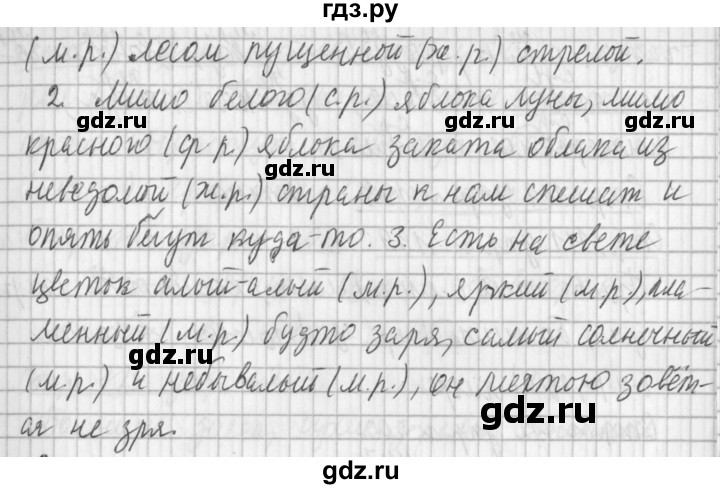 гдз.ру
(м.р.) лесом пущенной (ж.р.) стрелой.
2. Мимо белого (с.р.) яблока луны, мимо
gdz.ru
gdz.ru
красного (ср р.) яблока заката облака из
gdz.ru
неведомой (ж.р.) страны к нам спешат и
опять бегут куда-то. 3. Есть на свете
gdz.ru
gdz.ru
цветок алый-алый (м.р.), яркий (м.р.), пла-
менный (м.р.) будто заря, самый солнечный
gdz.ru
(м.р.) и небывалый (м.р.), он мечтою зовёт-
ся не зря.
gdz.ru
gdz.ru
gdz.ru